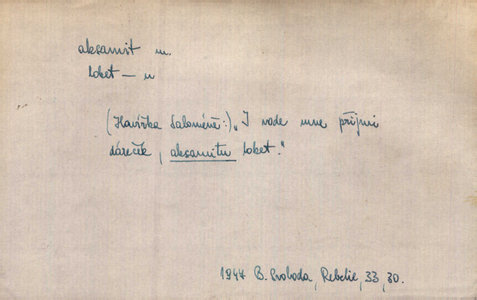 aksamit m.
loket — u
(Havířka Saloméně:) „I vode mne přijmi
dáreček, aksamitu loket."
1947 B. Svoboda, Rebelie, 33, 30.